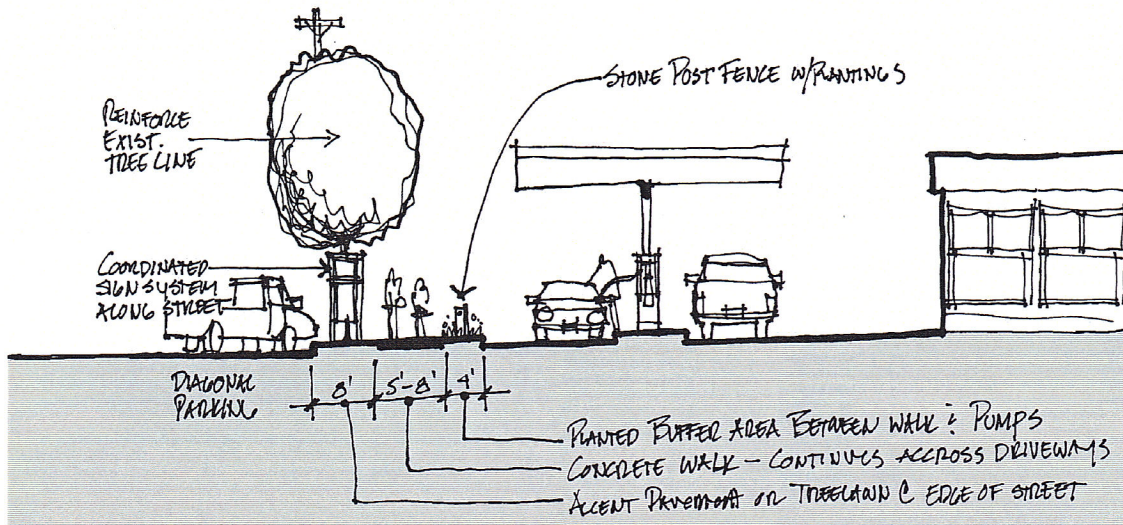 STONE POST FENCE W/PLANTINGS
REINFORCE
EXIST.
TREE LINE
COORDINATED
SIGN SYSTEM
ALONG STREET
DIAGONAL
PARKING
8' 5'-8' 4'
PLANTED BUFFER AREA BETWEEN WALK & PUMPS
CONCRETE WALK - CONTINUES ACCROSS DRIVEWAYS
ACCENT PAVEMENT OR TREELAWN @ EDGE OF STREET